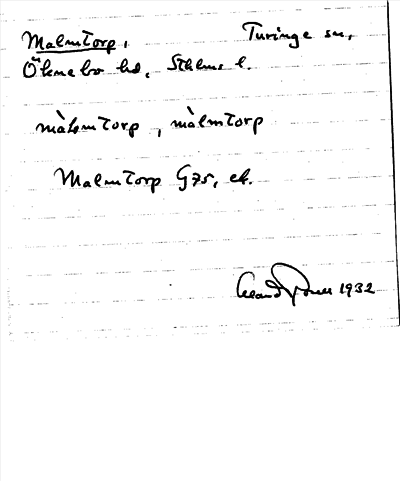 Malmtorp, Turinge sn,
Öknebo hd, Sthlms l.
màlmtorp, màlmtorp
Malmtorp G75, ek.
1932